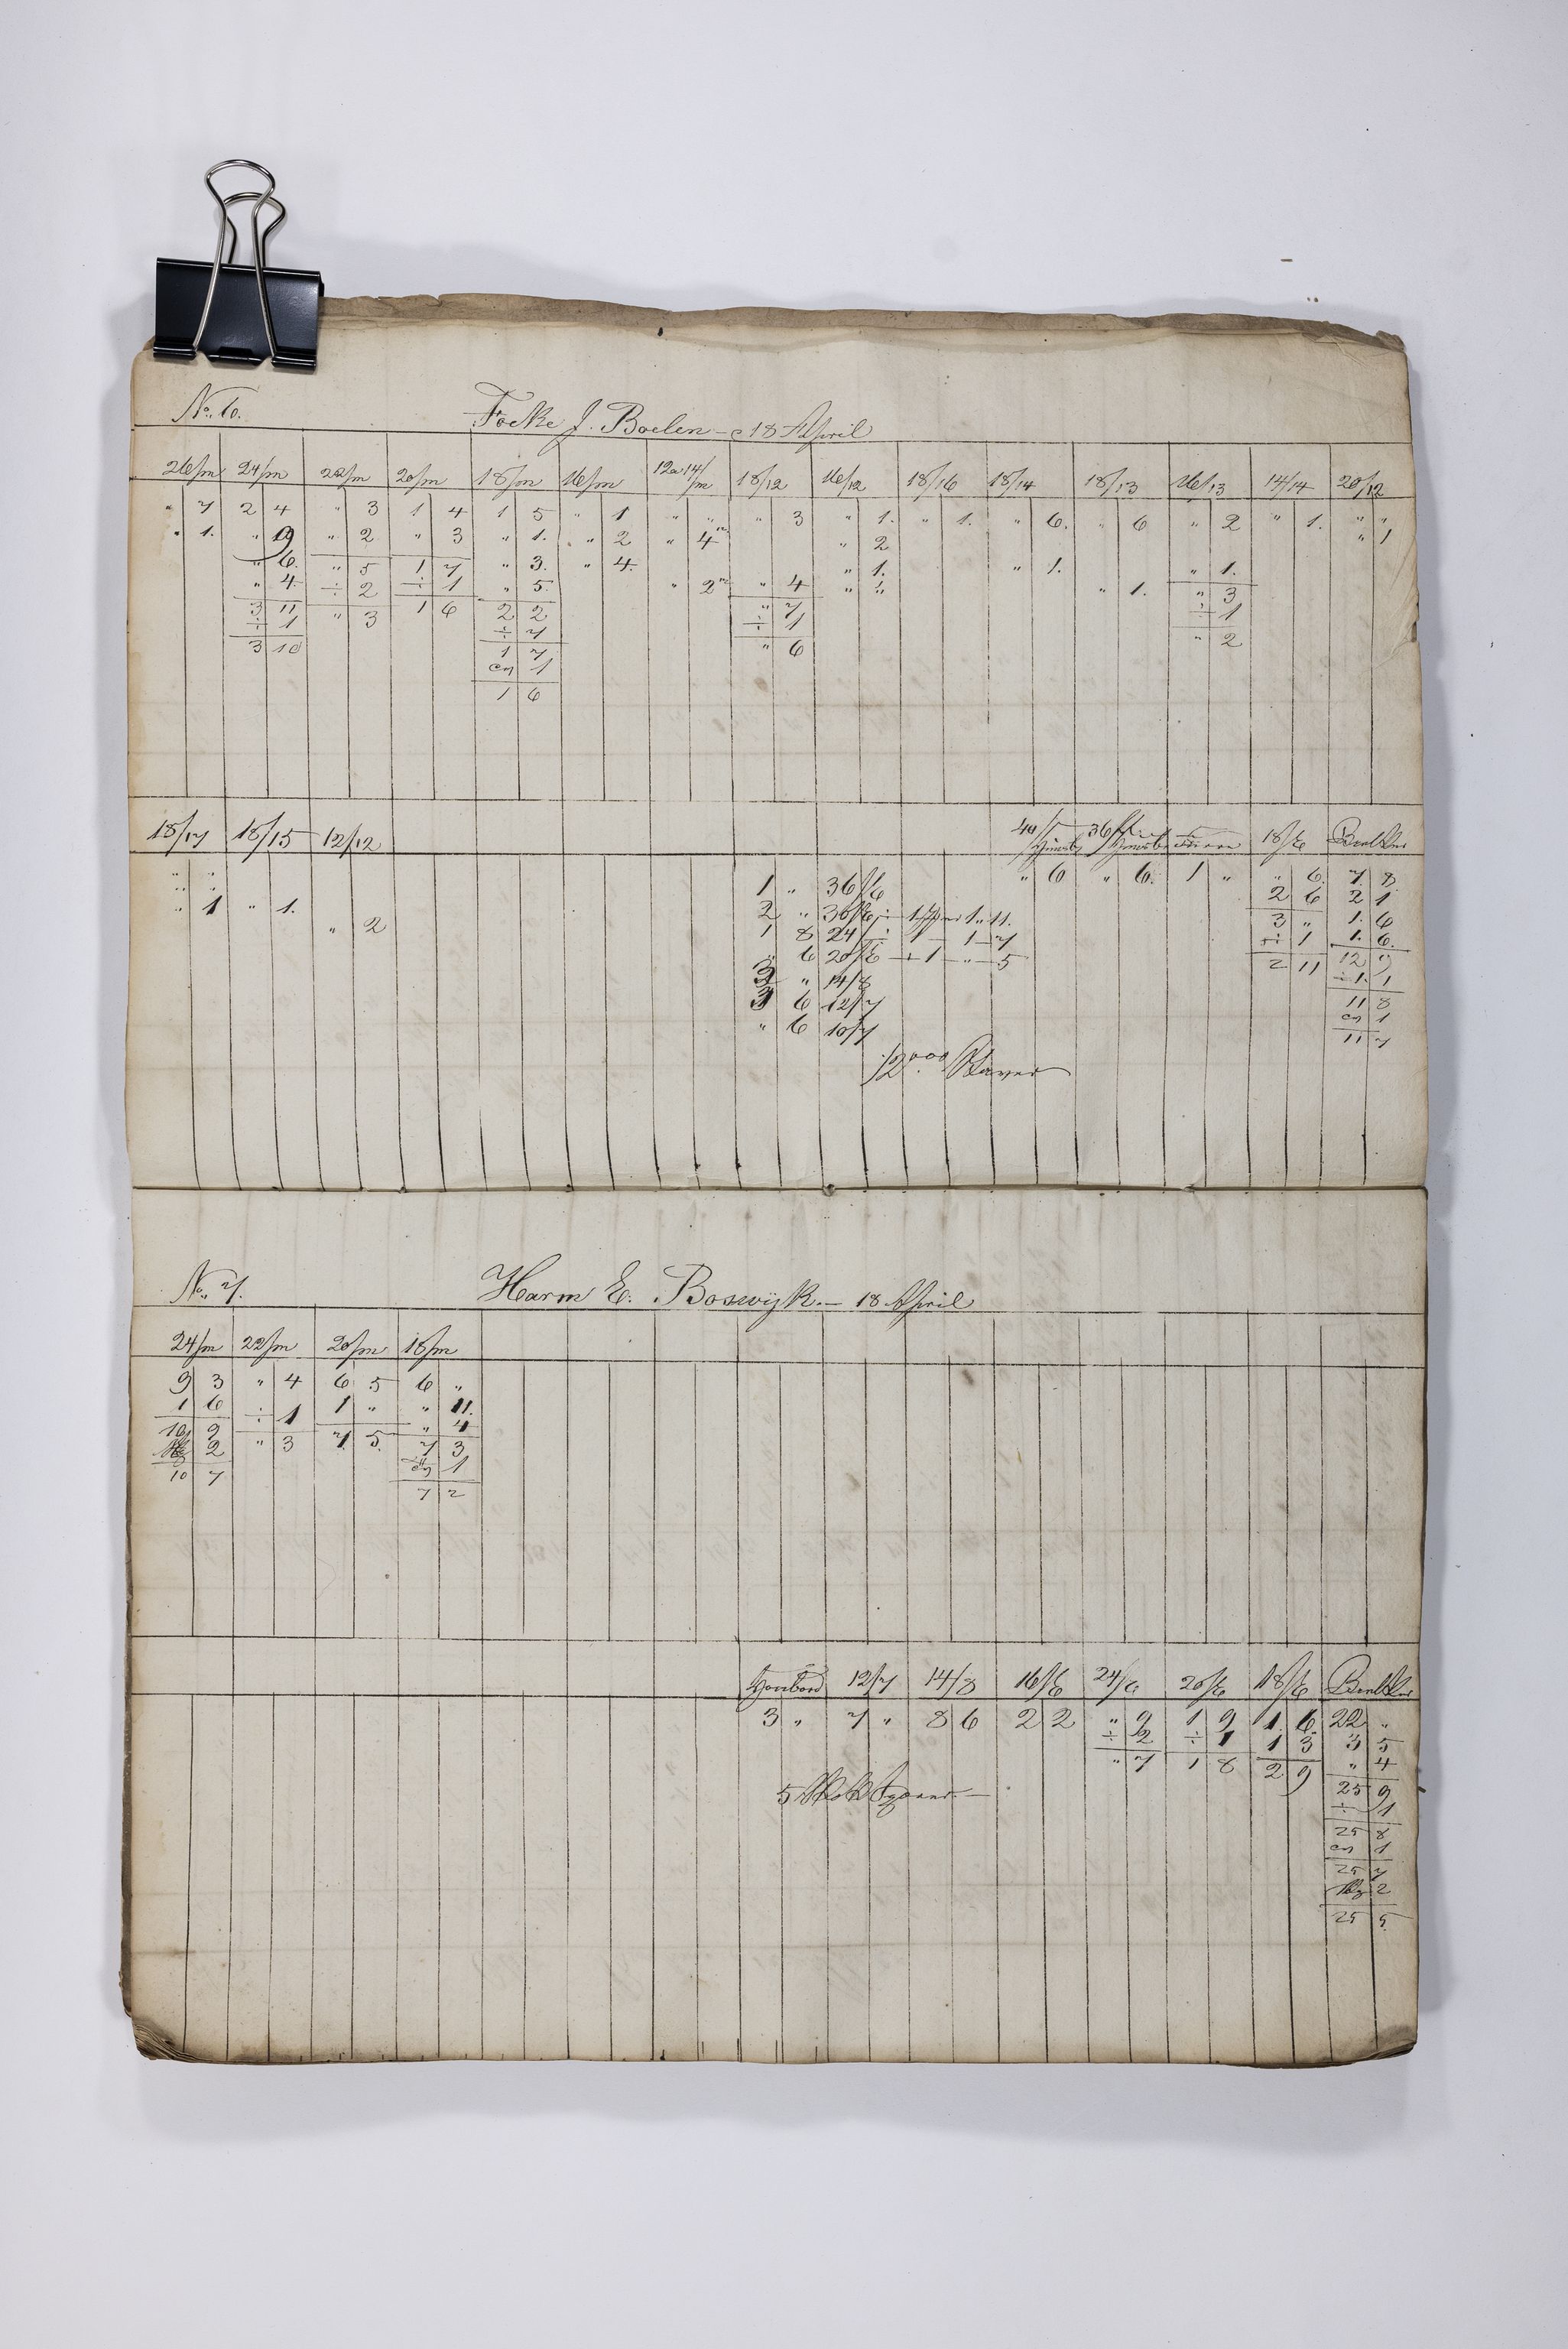 No. 6. Focke J. Boelen - 18 April
26/m 24/m 22/m 20/m 18/m 16/m 12 a 14/m 18/12 16/12 18/16 18/14 18/13 16/13 14/14 20/12
" 7 2 4 " 3 1 4 1 5 " 1 " " " 3 " 1. " 1. " 6. " 6 " 2 " 1. " "
" 1. " 9 " 2 " 3 " 1. " 2 " 4 " 2 " 1
" 6. " 5 1 7 " 3. " 4. " 1. " 1. " 1.
" 4. ÷ 2 ÷ 1 " 5. " 2 " 4 " " " 1. " 3
3 11 " 3 1 6 2 2 " 7 ÷ 1
÷ 1 ÷ 7 ÷ 1 " 2
3 10 1 7 " 6
en 1
1 6
18/17 18/15 12/12 40/ 36/ 18/6
" " 1 " 36/6 " 6 " 6. 1 " " 6. 7. 8
" " 2 6 2 1
" 1 " 1. 2 " 30/6 ÷ 1 1 " 11. 3 " 1. 6
" 2 1 8 24/ ÷ 1 - 1 - 7 ÷ 1 1. 6.
" 6 20/6 ÷ 1 - " - 5 2 11 12 9
3 " 14/8 ÷ 1. 1
3 6 12/7 11 8
" 6 10/7 en 1
12000 11 7
No. 7. Harm E. Boswijk. - 18 April
24/m 22/m 20/m 18/m
9 3 " 4 6 5 6 "
1 6 ÷ 1 1 " " 11.
10 9 " 3 7. 5. " 4
2 7 3
10 7 en 1
7 2
12/7 14/8 16/6 24/6 20/6 18/6
3 " 7 " 8 6 2 2 " 9 1 9 1. 6. 22 "
÷ 2 ÷ 1 1 3 3 5
" 7 1 8 2 9 " 4
5 25 9
÷ 1
25 8
en 1
25 7
2
25 5.